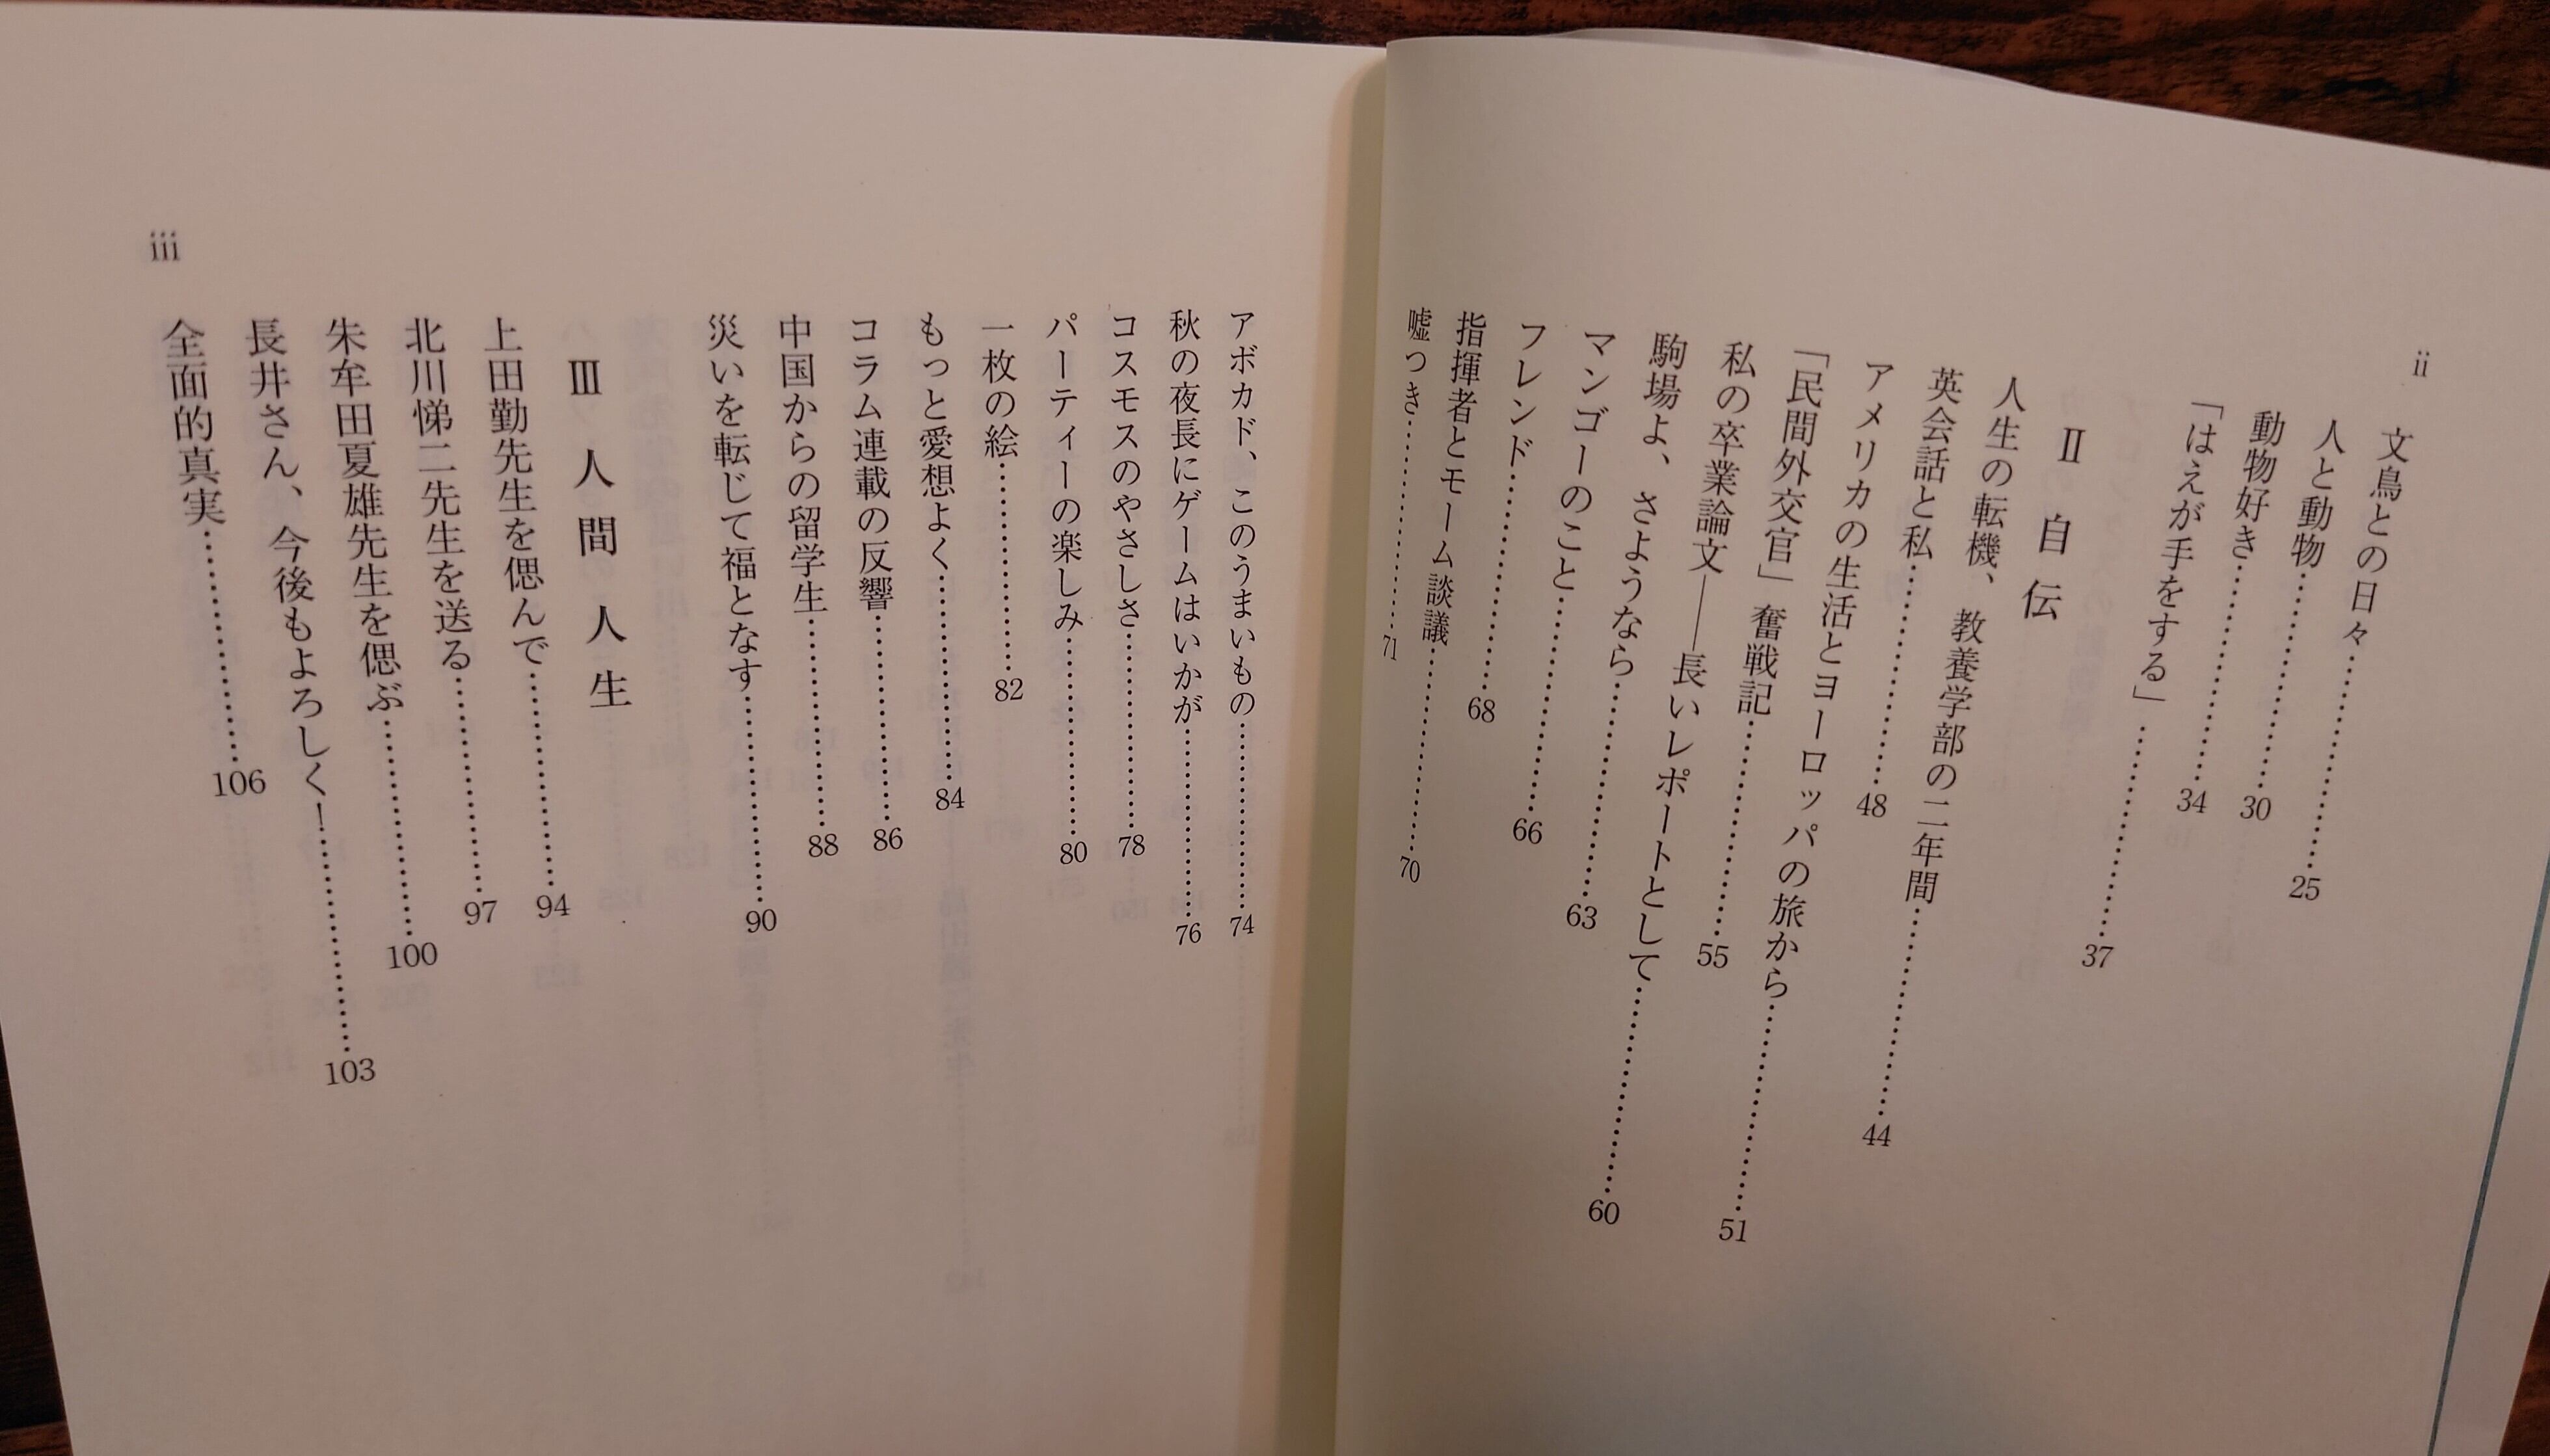 ii
文鳥との日々 25
人と動物 30
動物好き 34
「はえが手をする」 37
Ⅱ 自伝
人生の転機、教養学部の二年間 44
英会話と私 48
アメリカの生活とヨーロッパの旅から 51
「民間外交官」奮戦記 55
私の卒業論文――長いレポートとして 60
駒場よ、さようなら 63
マンゴーのこと 66
フレンド 68
指揮者とモーム談議 70
嘘つき 71
アボカド、このうまいもの 74
秋の夜長にゲームはいかが 76
コスモスのやさしさ 78
パーティーの楽しみ 80
一枚の絵 82
もっと愛想よく 84
コラム連載の反響 86
中国からの留学生 88
災いを転じて福となす 90
Ⅲ 人間人生
上田勤先生を偲んで 94
北川悌二先生を送る 97
朱牟田夏雄先生を偲ぶ 100
長井さん、今後もよろしく! 103
全面的真実 106
iii